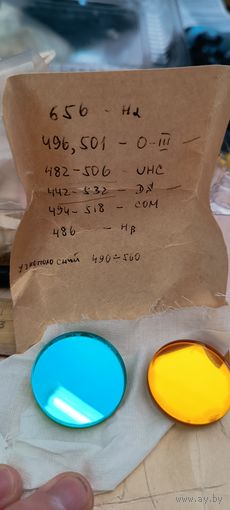 656 - Hα
496,501 - O-III
482-506 - UHC
442-532 - DS
494-518 - COM
486 - Hβ
узкополосный 490÷560
www.ay.by